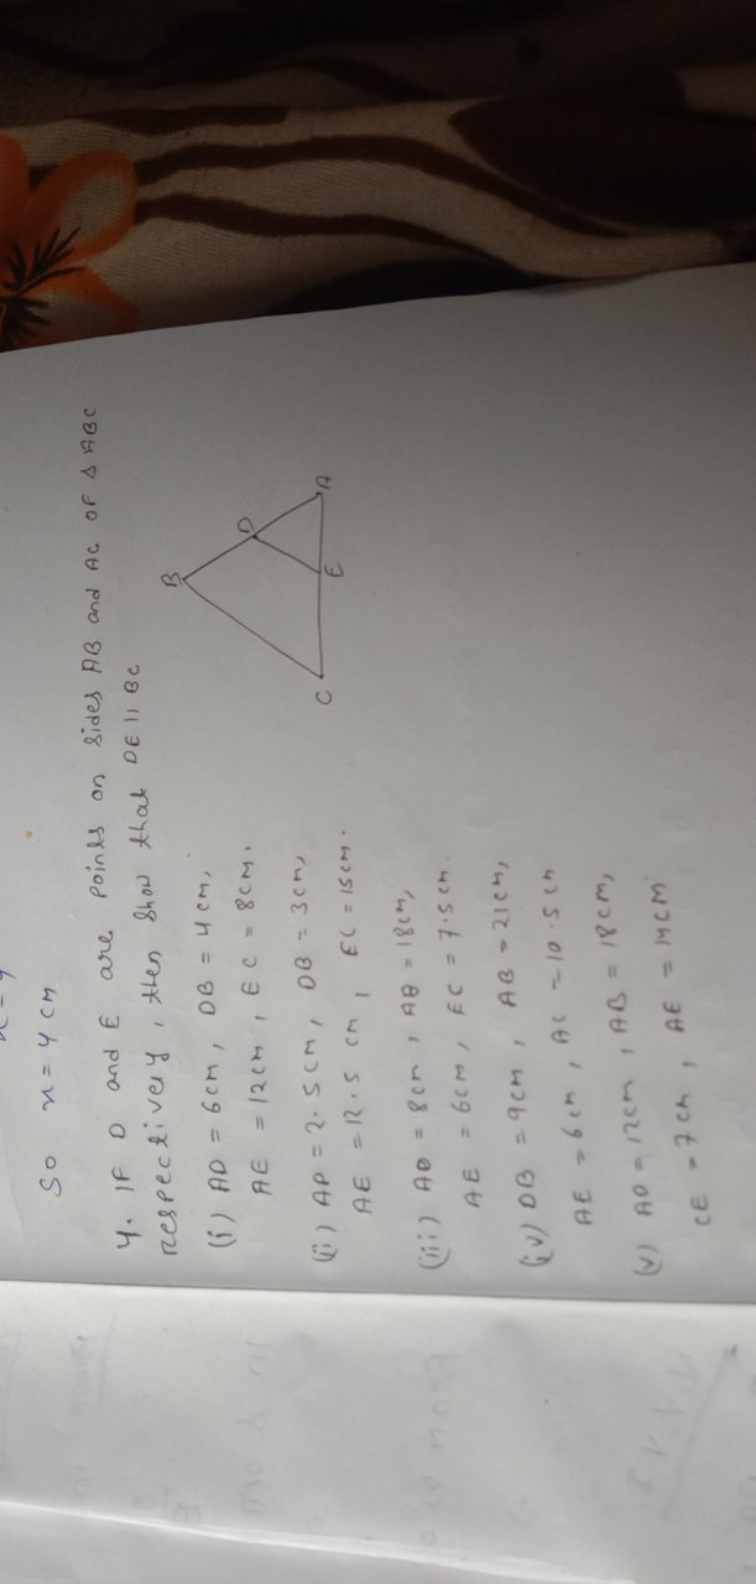 So x = 4 cm
4. IF D and E are points on sides AB and AC OF Δ ABC
respectively, then show that DE || BC
(i) AD = 6cm, DB = 4cm,
AE = 12cm, EC = 8cm.
(ii) AP = 2.5cm, DB = 3cm,
AE = 12.5 cm, EC = 15cm.
(iii) AD = 8cm, AB = 18cm,
AE = 6cm, EC = 7.5cm.
(iv) DB = 9cm, AB = 21cm,
AE = 6cm, AC = 10.5cm
(v) AD = 12cm, AB = 18cm,
CE = 7cm, AE = 14cm
B
D
A
E
C